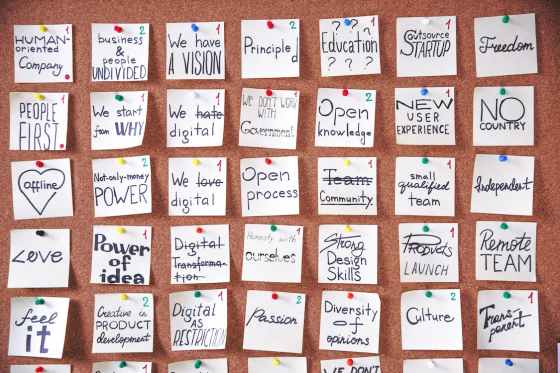 HUMAN-
oriented
Company.
1
business
&
people
UNDIVIDED
2
We have
A VISION
1
Principled
2
? ? ?
Education
? ? ?
1
Outsource
STARTUP
1
Freedom
PEOPLE
FIRST.
1
We start
from WHY
1
We hate
digital
1
WE DON'T WORK
with
Government
1
Open
knowledge
2
NEW
USER
EXPERIENCE
1
NO
COUNTRY
offline
Not-only-money
POWER
2
We love
digital
1
Open
process
1
Team
Community
1
small
qualified
team
1
Independent
Love
Power
of
idea
1
Digital
Transforma-
tion
1
Honesty with
ourselves
1
Strong
Design
Skills
1
PRODUCTS
LAUNCH
1
Remote
TEAM
feel
it
Creative in
PRODUCT
development
2
Digital
AS
RESTRICTION
1
Passion
2
Diversity
of
opinions
Culture
2
Trans-
parent
1
WE DON'T